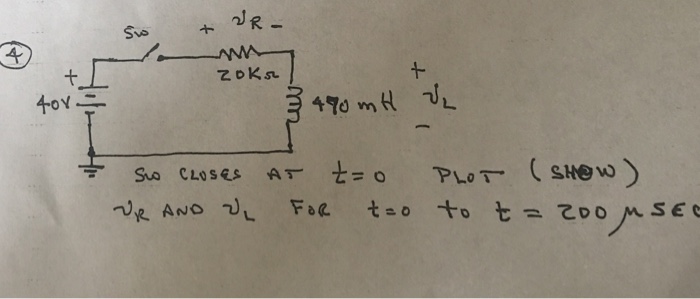 ④
SW
+ VR -
20KΩ
+
40V
490 mH
+
VL
-
SW CLOSES AT t=0 PLOT (SHOW)
VR AND VL FOR t=0 to t = 200 μSEC